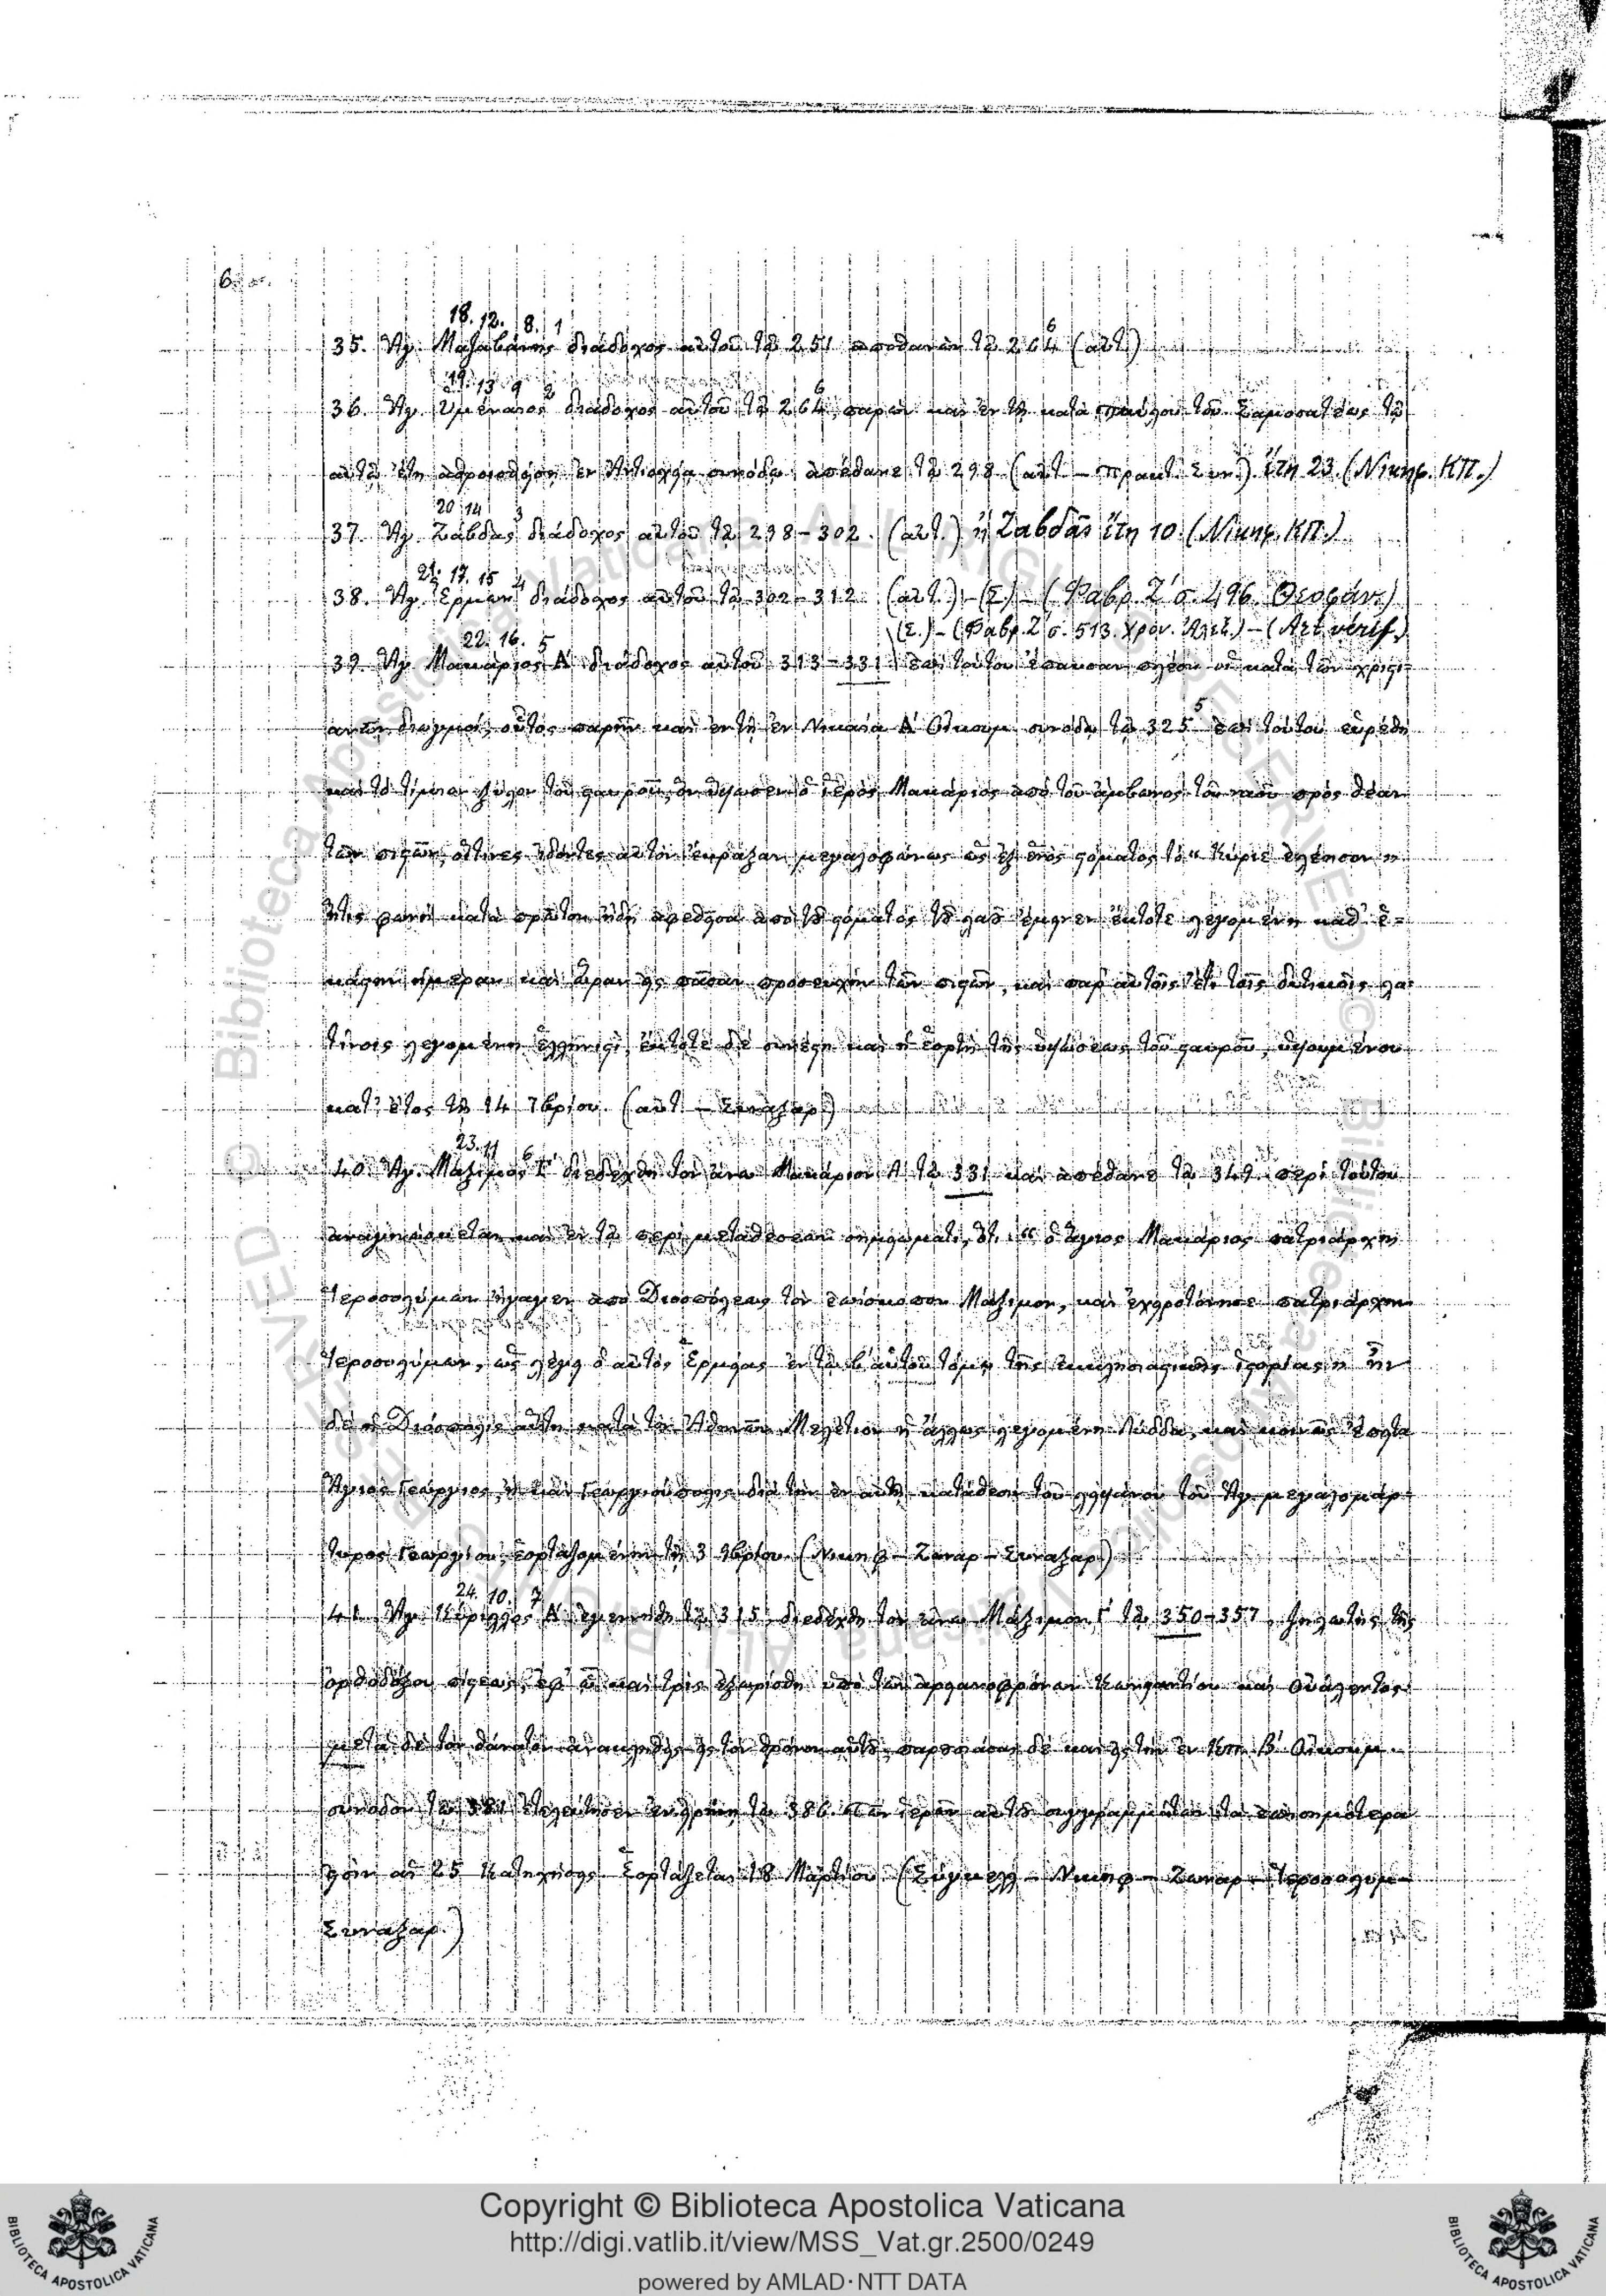 6
18. 12. 8. 1
35. Ἅγ. Μαζαβάνης διάδοχος αὐτοῦ τῷ 251 ἀπέθανεν τῷ 264 (αὐτ.)
6
19. 13 9 2
36. Ἅγ. Ὑμέναιος διάδοχος αὐτοῦ τῷ 264, παρὼν καὶ ἐν τῇ κατὰ Παύλου τοῦ Σαμοσατέως τῷ
6
αὐτῷ ἔτη ἀθροισθείσῃ ἐν Ἀντιοχείᾳ συνόδῳ, ἀπέθανε τῷ 298 (αὐτ – Πρακτ. Συν.) ἔτη 23. (Νικηφ. ΚΠ.)
20 14 3
37. Ἅγ. Ζάβδας διάδοχος αὐτοῦ τῷ 298 – 302. (αὐτ.) ἢ Ζαβδᾶς ἔτη 10 (Νικηφ. ΚΠ.)
21. 17. 15 4
38. Ἅγ. Ἕρμων διάδοχος αὐτοῦ τῷ 302 – 312 (αὐτ.) – (Σ) – (Φαβρ. Ζ' σ. 496. Θεοφάν.)
(Σ.) – (Φαβρ. Ζ' σ. 513. Χρον. Ἀλεξ.) – (Art vérif.)
22. 16. 5
39. Ἅγ. Μακάριος Α' διάδοχος αὐτοῦ 313 – 331 ἐπὶ τούτου ἔπαυσαν πλέον οἱ κατὰ τῶν χριστι-
ανῶν διωγμοί, οὗτος παρῆν καὶ ἐν τῇ ἐν Νικαίᾳ Α' Οἰκουμ. συνόδῳ τῷ 325 ἐπὶ τούτου εὑρέθη
5
καὶ τὸ τίμιον ξύλον τοῦ σταυροῦ, ὃν ὕψωσεν ὁ ἱερὸς Μακάριος ἀπὸ τοῦ ἄμβωνος τοῦ ναοῦ πρὸς θέαν
τῶν πιστῶν, οἵτινες ἰδόντες αὐτὸν ἔκραξαν μεγαλοφώνως ὡς ἐξ ἑνὸς στόματος τὸ « Κύριε ἐλέησον »
ἥτις φωνὴ κατὰ πρῶτον ἤδη ἀφεθεῖσα ἀπὸ τȣ͂ στόματος τȣ͂ λαȣ͂ ἔμεινεν ἔκτοτε λεγομένη καθ' ἑ-
κάστην ἡμέραν καὶ ὥραν εἰς πᾶσαν προσευχὴν τῶν πιστῶν, καὶ παρ' αὐτοῖς ἔτι τοῖς δυτικοῖς λα-
τίνοις λεγομένη ἑλληνιστί, ἔκτοτε δὲ συνέστη καὶ ἡ ἑορτὴ τῆς ὑψώσεως τοῦ σταυροῦ, ὑψουμένου
κατ' ἔτος τῇ 14 7βρίου. (αὐτ. – Συναξαρ.)
23. 11 6
40. Ἅγ. Μάξιμος Γ' διεδέχθη τὸν ἄνω Μακάριον Α' τῷ 331 καὶ ἀπέθανε τῷ 349. περὶ τούτου
ἀναγινώσκεται καὶ ἐν τῷ περὶ μεταθέσεων σημειώματι, ὅτι « ὁ ἅγιος Μακάριος πατριάρχης
Ἱεροσολύμων ἤγαγεν ἀπὸ Διοσπόλεως τὸν ἐπίσκοπον Μάξιμον, καὶ ἐχειροτόνησε πατριάρχην
Ἱεροσολύμων, ὡς λέγει ὁ αὐτὸς Ἑρμείας ἐν τῷ β' αὐτοῦ τόμῳ τῆς ἐκκλησιαστικῆς ἱστορίας » ἦν
δὲ ἡ Διόσπολις αὕτη κατὰ τὸν Ἀθηνῶν Μελέτιον ἡ ἄλλως λεγομένη Λύδδα, καὶ κοινῶς ἔπειτα
Ἅγιος Γεώργιος, ἢ καὶ Γεωργιούπολις διὰ τὴν ἐν αὐτῇ κατάθεσιν τοῦ λειψάνου τοῦ Ἁγ. μεγαλομάρ-
τυρος Γεωργίου, ἑορταζομένην τῇ 3 9βρίου. (Νικηφ – Ζωναρ – Συναξαρ.)
24. 10. 7
41. Ἅγ. Κύριλλος Α' ἐγεννήθη τῷ 315, διεδέχθη τὸν ἄνω Μάξιμον Γ' τῷ 350 – 357, ζηλωτὴς τῆς
ὀρθοδόξου πίστεως, ἐφ' ᾧ καὶ τρὶς ἐξωρίσθη ὑπὸ τῶν ἀρειανοφρόνων Κωνσταντίου καὶ Οὐάλεντος
μετὰ δὲ τὸν θάνατον ἀνακληθεὶς εἰς τὸν θρόνον αὐτȣ͂, παρρησιάσας δὲ καὶ εἰς τὴν ἐν Κπ. Β' Οἰκουμ.
σύνοδον τῷ 381 ἐτελεύτησεν ἐν εἰρήνῃ τῷ 386. τῶν ἱερῶν αὐτȣ͂ συγγραμμάτων τὰ ἐπισημότερα
εἰσὶν αἱ 25 Κατηχήσεις. Ἑορτάζεται 18 Μαρτίου. (Σύγκελλ – Νικηφ – Ζωναρ – Ἱεροσολυμ –
Συναξαρ.)
Copyright © Biblioteca Apostolica Vaticana
http://digi.vatlib.it/view/MSS_Vat.gr.2500/0249
powered by AMLAD·NTT DATA
BIBLIOTECA APOSTOLICA VATICANA
BIBLIOTECA APOSTOLICA VATICANA